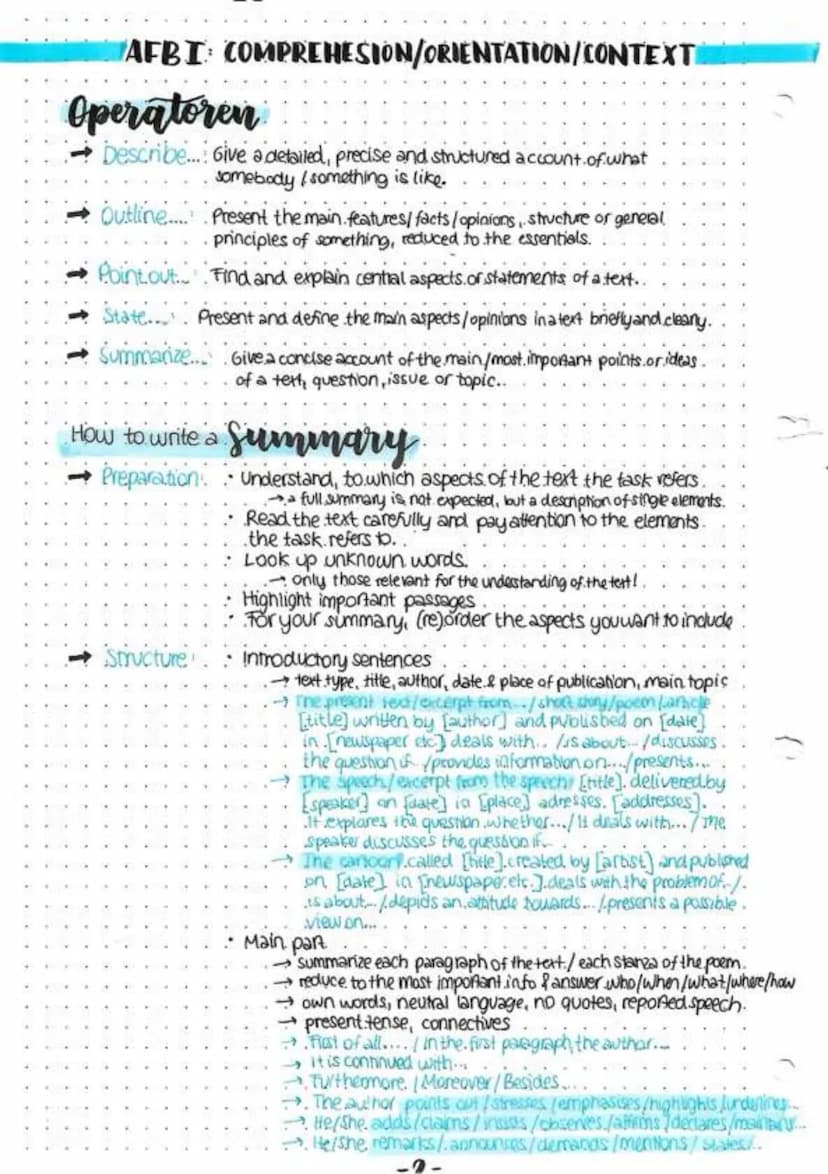 AFB I: COMPREHESION/ORIENTATION/CONTEXT
Operatoren
→ Describe... : Give a detailed, precise and structured account of what
somebody / something is like.
→ Outline.... : Present the main features/facts/opinions, structure or general
principles of something, reduced to the essentials.
→ Point out... : Find and explain central aspects or statements of a text.
→ State... : Present and define the main aspects/opinions in a text briefly and cleary.
→ Summarize... : Give a concise account of the main/most important points or ideas
of a text, question, issue or topic.
How to write a Summary
→ Preparation: • Understand, to which aspects of the text the task refers
→ a full summary is not expected, but a description of single elements.
• Read the text carefully and pay attention to the elements
the task refers to.
• Look up unknown words.
→ only those relevant for the understanding of the text!
• Highlight important passages
• For your summary, (re)order the aspects you want to include
→ Structure: • Introductory sentences
→ text type, title, author, date & place of publication, main topic
→ The present text/excerpt from.../short story/poem/article
[title] written by [author] and published on [date]
in [newspaper etc.] deals with... /is about... /discusses
the question if... /provides information on.../presents...
→ The speech/excerpt from the speech [title] delivered by
[speaker] on [date] in [place] adresses [addresses].
It explores the question whether.../It deals with... / The
speaker discusses the question if...
→ The cartoon called [title] created by [artist] and published
on [date] in [newspaper etc.] deals with the problem of.../
is about... / depicts an attitude towards... / presents a possible
view on...
• Main part
→ summarize each paragraph of the text / each stanza of the poem.
→ reduce to the most important info & answer who/when/what/where/how
→ own words, neutral language, no quotes, reported speech.
→ present tense, connectives
→ First of all.... / In the first paragraph, the author...
→ It is continued with...
→ Furthermore / Moreover / Besides...
→ The author points out/stresses/emphasises/highlights/underlines...
→ He/She adds/claims/insists/observes/affirms/declares/maintains...
→ He/She remarks/announces/demands/mentions/states/...
-2-